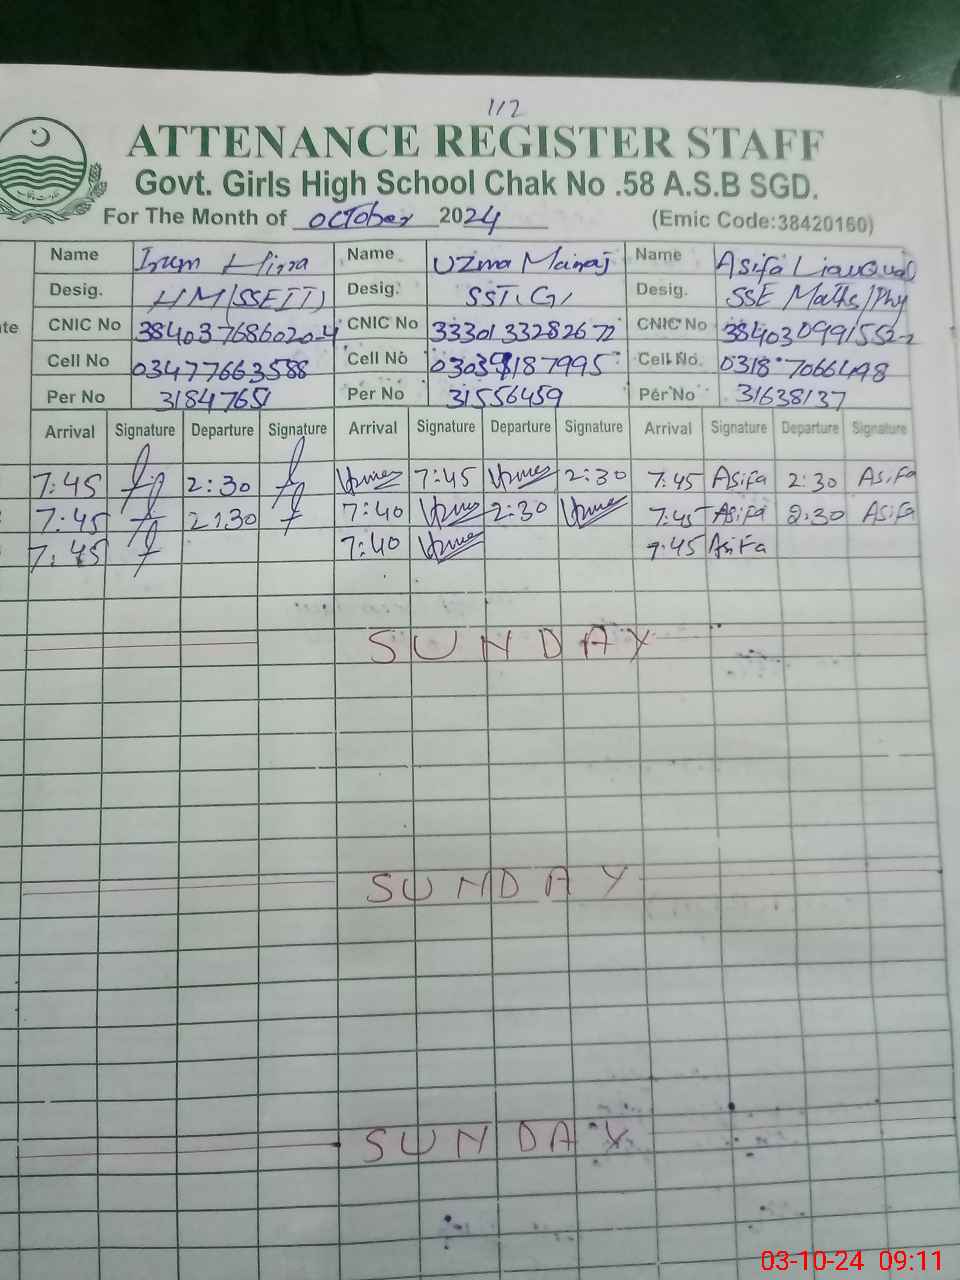 112
ATTENANCE REGISTER STAFF
Govt. Girls High School Chak No .58 A.S.B SGD.
For The Month of October 2024 (Emic Code:38420160)
Name Irum Hina Name Uzma Mairaj Name Asifa Liauqat
Desig. HM(SSEIT) Desig. SST(G) Desig. SSE Maths/Phy
CNIC No CNIC No 3330133282672 CNIC No
Cell No 03477663588 Cell No Cell No. 0318
Per No 31847651 Per No 31556459 Per No 31638137
Arrival Signature Departure Signature Arrival Signature Departure Signature Arrival Signature Departure Signature
7:45 2:30 Uzma 7:45 Uzma 2:30 7:45 Asifa 2:30 Asifa
7:45 2:30 7:40 Uzma 2:30 Uzma 7:45 Asifa 2:30 Asifa
7:45 7:40 Uzma 7:45 Asifa
SUNDAY
SUNDAY
SUNDAY
03-10-24 09:11